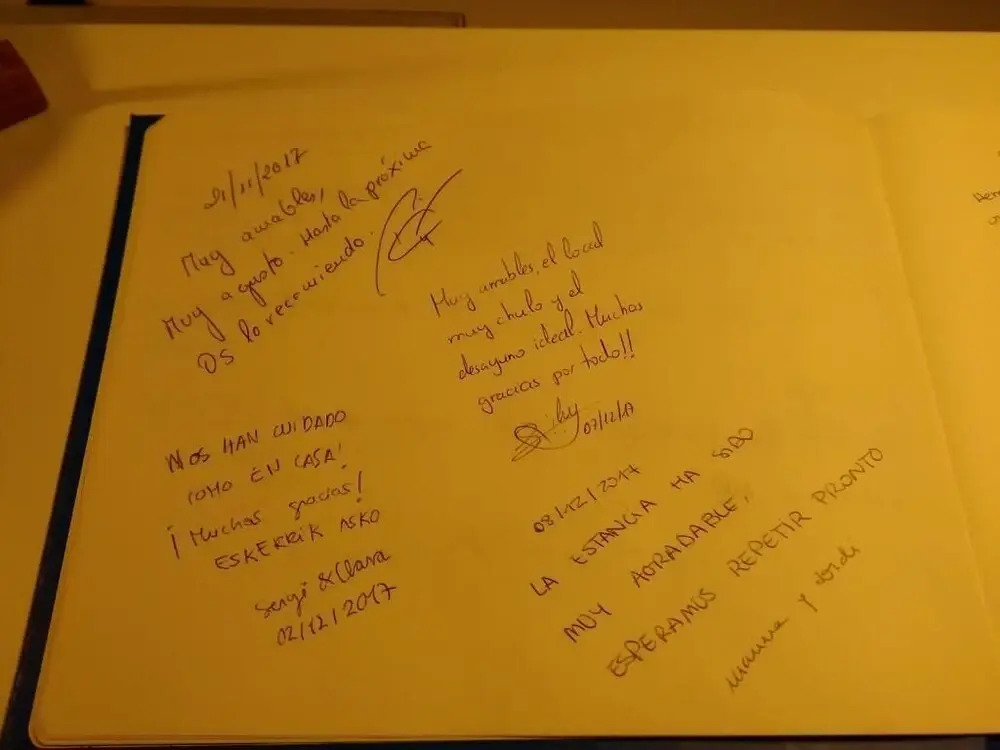 21/11/2017
Muy amables,
Muy a gusto. Hasta la próxima
OS lo recomiendo.
NOS HAN CUIDADO
COMO EN CASA!
¡Muchas gracias!
ESKERRIK ASKO
Sergi & Clara
02/12/2017
Muy amables, el local
muy chulo y el
desayuno ideal. Muchas
gracias por todo!!
07/12/17
08/12/2017
LA ESTANCIA HA SIDO
MUY AGRADABLE,
ESPERAMOS REPETIR PRONTO
y Jordi